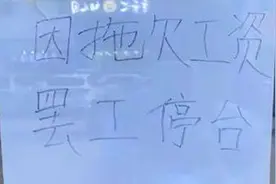 因拖欠工资
罢工停台